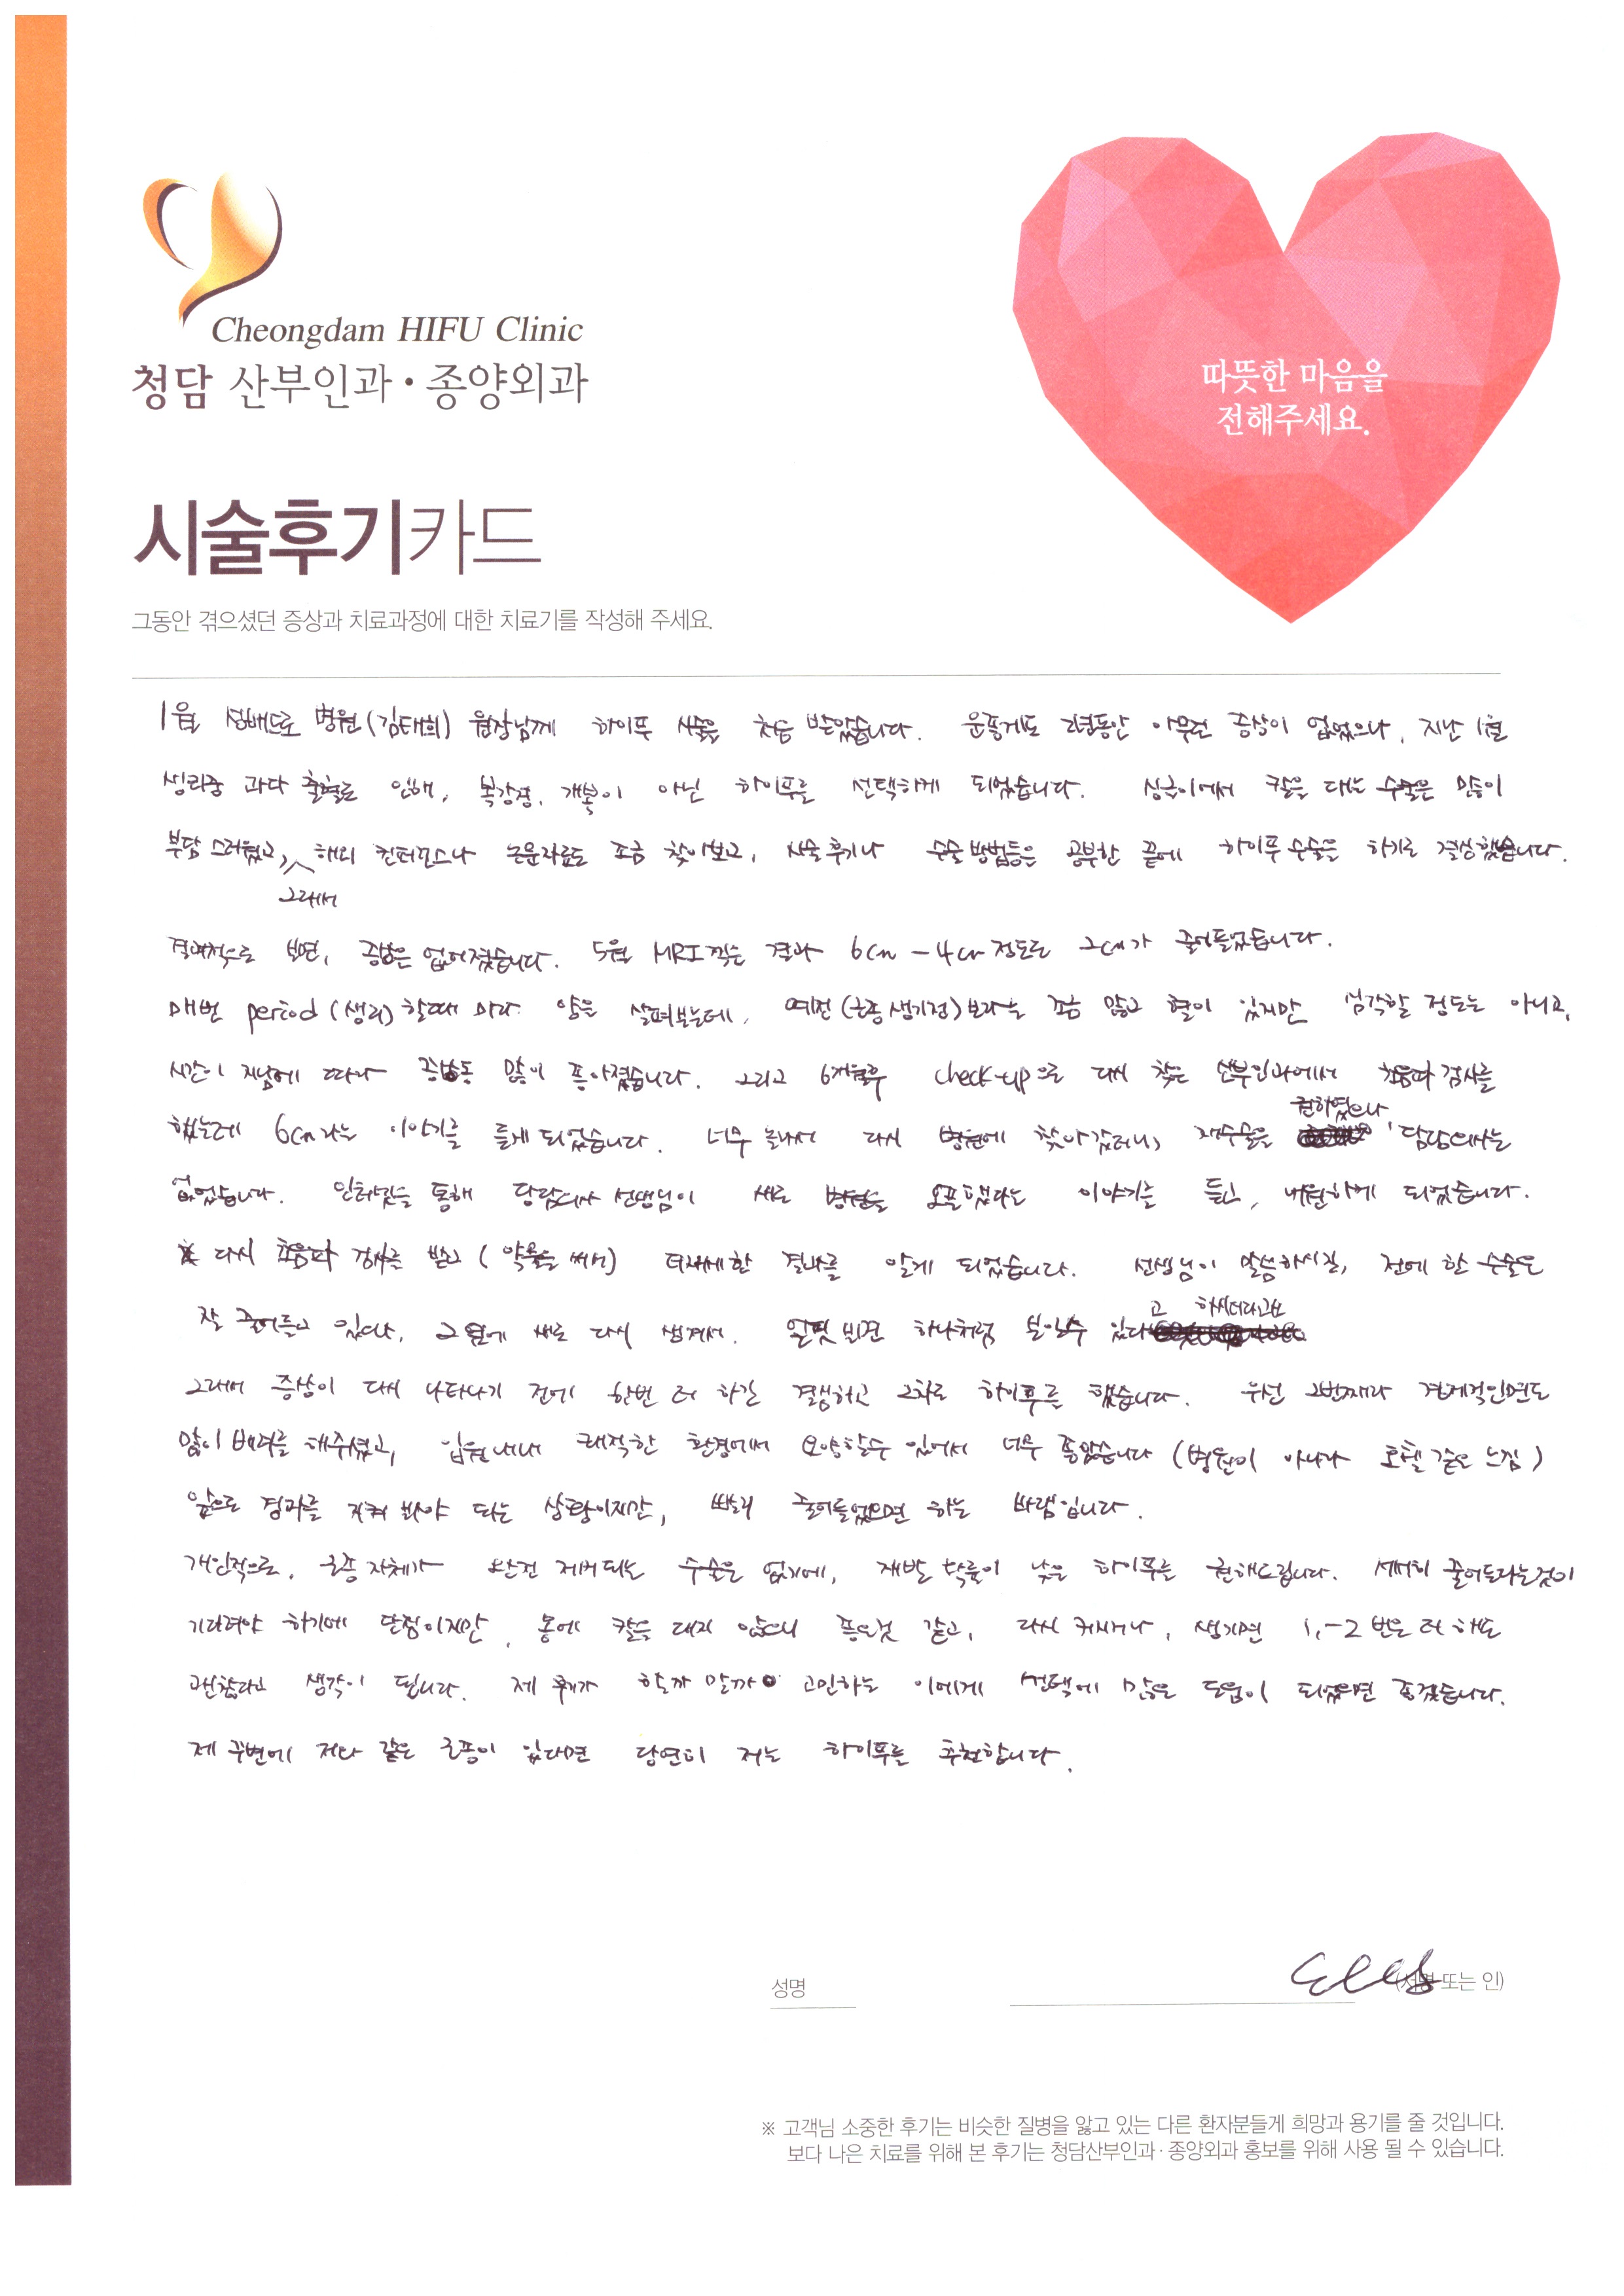 Cheongdam HIFU Clinic
청담 산부인과·종양외과
따뜻한 마음을
전해주세요.
시술후기카드
그동안 겪으셨던 증상과 치료과정에 대한 치료기를 작성해 주세요.
1월 성베드로 병원(김태희) 원장님께 하이푸 시술을 처음 받았습니다. 운좋게도 2년동안 아무런 증상이 없었으나, 지난 1월
생리중 과다 출혈로 인해, 복강경, 개복이 아닌 하이푸를 선택하게 되었습니다. 싱글이어서 칼을 대는 수술은 많이
부담스러웠고, 그래서 해외 컨퍼런스나 논문자료도 조금 찾아보고, 시술후기나 수술방법등은 공부한 끝에 하이푸 수술을 하기로 결심했습니다.
결과적으로 보면, 증상은 없어졌습니다. 5월 MRI 찍은 결과 6cm - 4cm 정도로 2cm가 줄어들었습니다.
매번 period (생리) 할때 마다 양을 살펴보는데, 예전(근종 생기전)보다는 조금 많고 혈이 있지만 심각할 정도는 아니고,
시간이 지남에 따라 증상도 많이 좋아졌습니다. 그리고 6개월후 check-up으로 다시 찾은 산부인과에서 초음파 검사를
했는데 6cm라는 이야기를 듣게 되었습니다. 너무 놀라서 다시 병원에 찾아갔더니, 재수술을 권하였으나 담당의사는
없었습니다. 인터넷을 통해 담당의사 선생님이 새로 병원을 오픈했다는 이야기를 듣고, 내원하게 되었습니다.
다시 초음파 검사를 받고 (약물을 써서) 더자세한 결과를 알게 되었습니다. 선생님이 말씀하시길, 전에 한 수술은
잘 줄어들고 있으나, 그 옆에 새로 다시 생겨서, 얼핏 보면 하나처럼 보일수 있다고 하시더라고요
그래서 증상이 다시 나타나기 전에 한번 더 하길 결심하고 2차로 하이푸를 했습니다. 우선 2번째라 경제적인면도
많이 배려를 해주셨고, 입원내내 쾌적한 환경에서 요양할수 있어서 너무 좋았습니다 (병원이 아니라 호텔 같은 느낌)
앞으로 경과를 지켜 봐야 되는 상황이지만, 빨리 줄어들었으면 하는 바램입니다.
개인적으로, 근종 자체가 완전 제거되는 수술은 없기에, 재발 확률이 낮은 하이푸를 권해드립니다. 서서히 줄어든다는것이
기다려야 하기에 단점이지만, 몸에 칼을 대지 않으니 좋은것 같고, 다시 커지거나, 생기면 1,-2번은 더 해도
괜찮다고 생각이 됩니다. 제 후기가 할까 말까 고민하는 이에게 선택에 많은 도움이 되었으면 좋겠습니다.
제 주변에 저와 같은 근종이 있다면 당연히 저는 하이푸를 추천합니다.
성명
(서명 또는 인)
※ 고객님 소중한 후기는 비슷한 질병을 앓고 있는 다른 환자분들게 희망과 용기를 줄 것입니다.
보다 나은 치료를 위해 본 후기는 청담산부인과·종양외과 홍보를 위해 사용 될 수 있습니다.